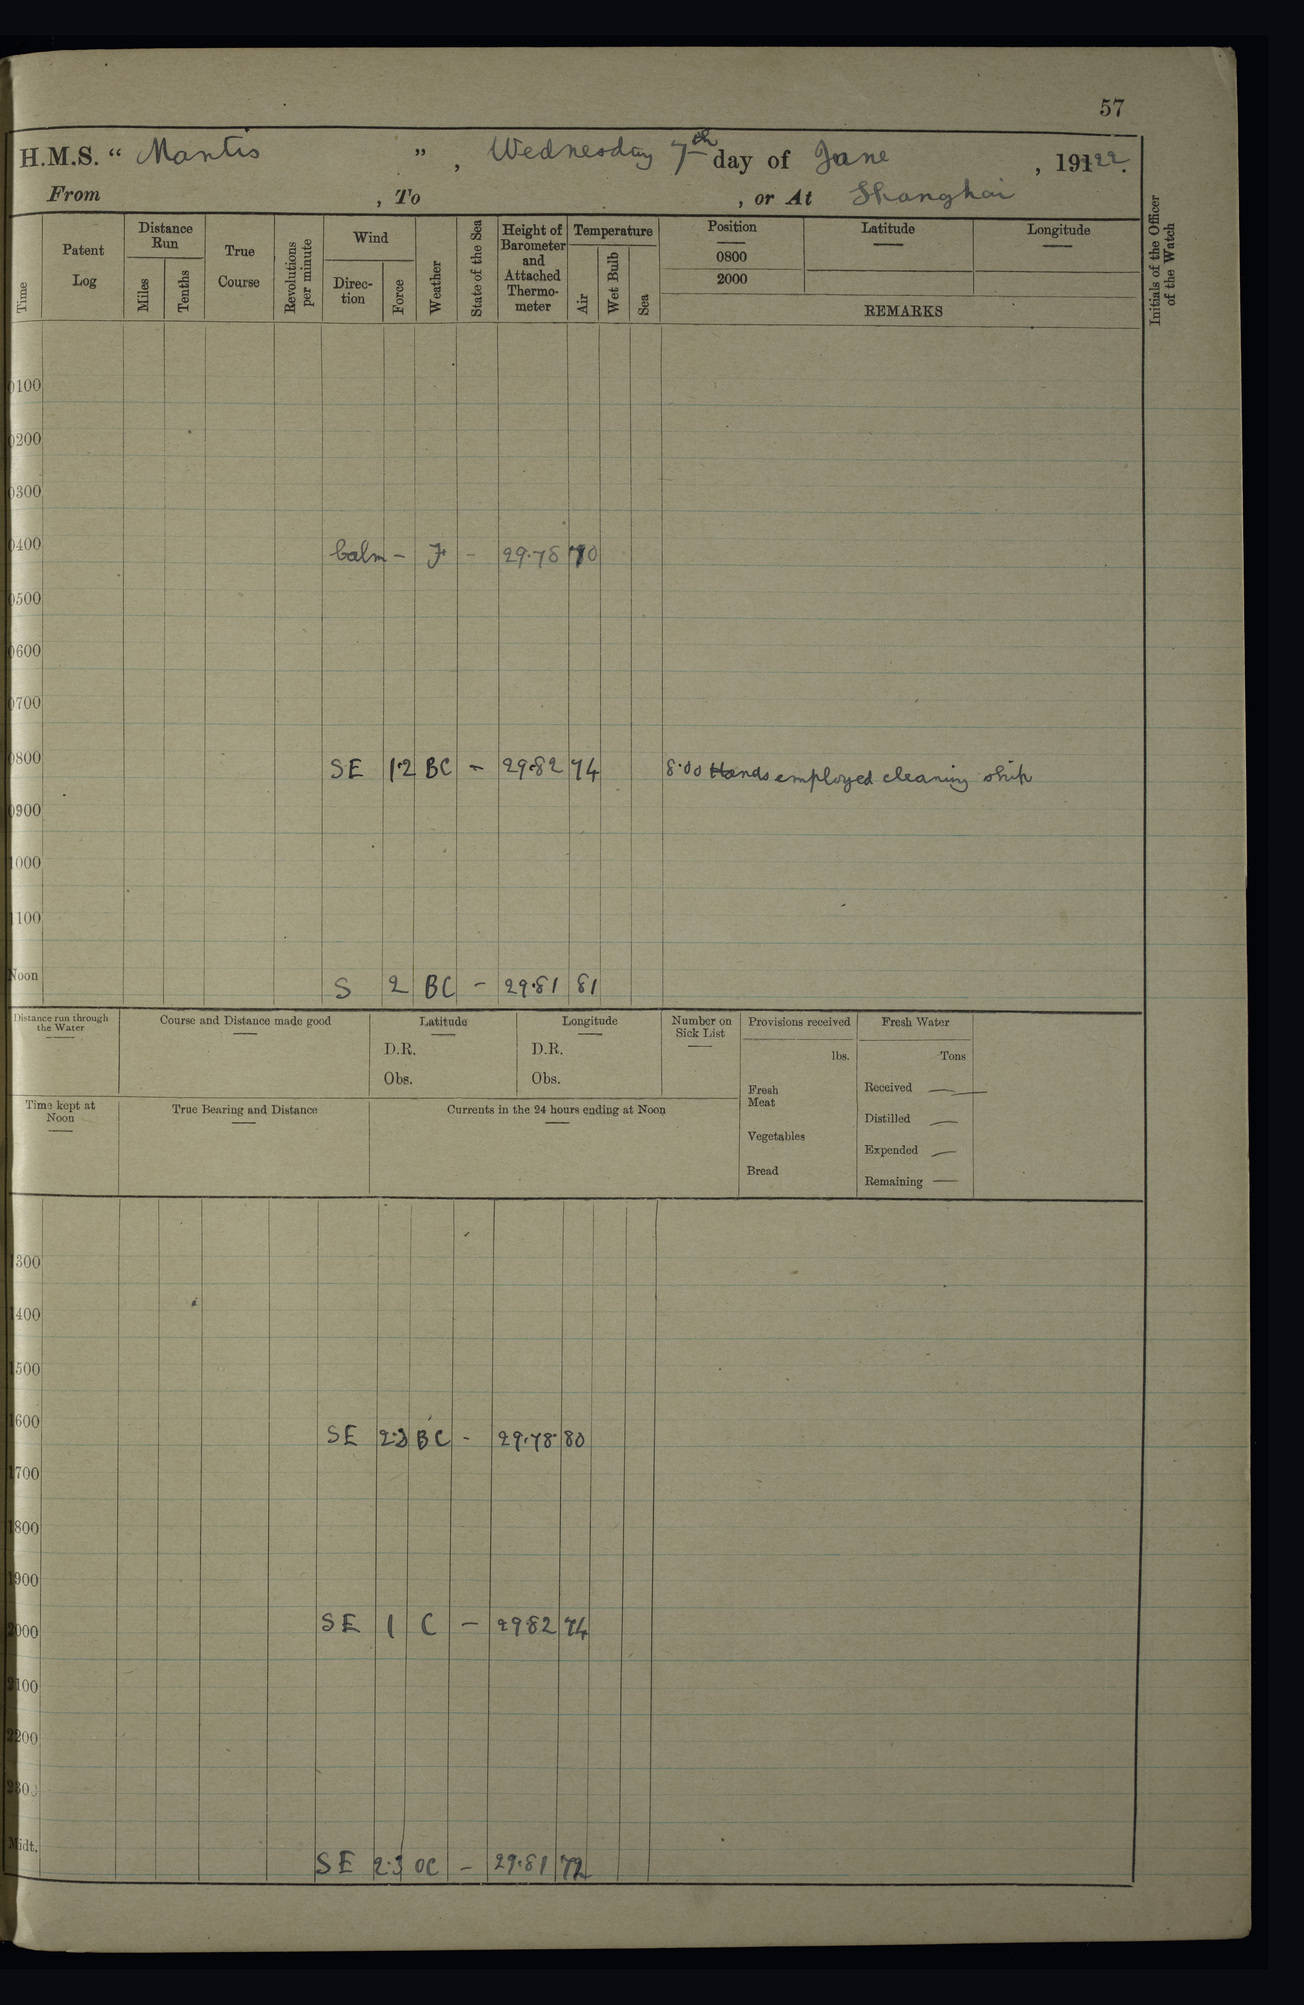 57
H.M.S. “ Mantis ” , Wednesday 7th day of June , 19122.
From , To , or At Shanghai
Time
Patent Log
Distance Run
Miles
Tenths
True Course
Revolutions per minute
Wind
Direc-tion
Force
Weather
State of the Sea
Height of Barometer and Attached Thermo-meter
Temperature
Air
Wet Bulb
Sea
Position
0800
2000
Latitude
Longitude
REMARKS
Initials of the Officer of the Watch
0100
0200
0300
0400 Calm – F – 29.78 70
0500
0600
0700
0800 SE 1.2 BC – 29.82 74 8.00 Hands employed cleaning ship
0900
1000
1100
Noon S 2 BC – 29.81 81
Distance run through the Water
Course and Distance made good
Latitude
D.R.
Obs.
Longitude
D.R.
Obs.
Number on Sick List
Provisions received
lbs.
Fresh Meat
Vegetables
Bread
Fresh Water
Tons
Received —
Distilled —
Expended —
Remaining —
Time kept at Noon
True Bearing and Distance
Currents in the 24 hours ending at Noon
1300
1400
1500
1600 SE 2.3 BC - 29.78 80
1700
1800
1900
2000 SE 1 C – 2982 74
2100
2200
2300
Midt. SE 2.3 OC – 29.81 72